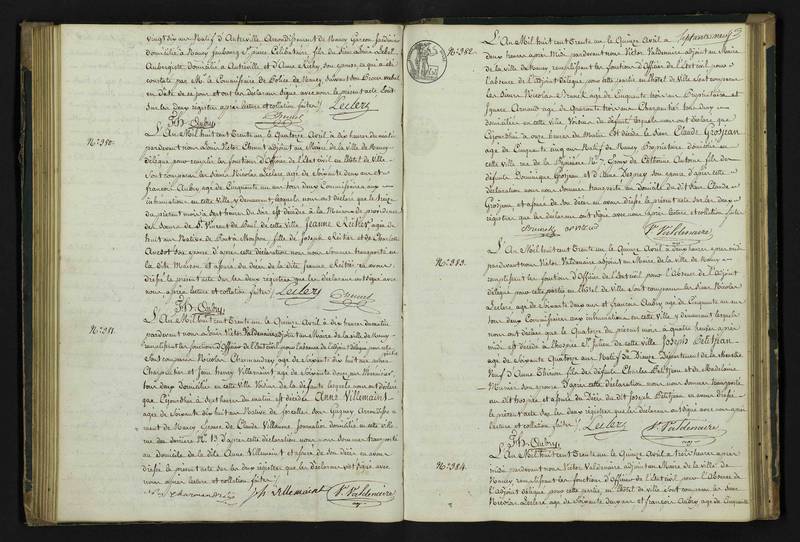 vingt dix ans Natif d'Autreville Arrondissement de Nancy Garçon Jardinier
domicilié à Nancy faubourg St pierre Célibataire fils de
Aubergiste domicilié à Autreville et d'Anne Richy, son épouse, ce qui a été
constaté par Mr le Commissaire de Police de Nancy suivant son Procès verbal
en date de ce jour et ont les déclarans signé avec nous le présent acte fait
sur les deux registres après lecture et collation faites/. Leclerz
Fs. Aubry
No. 380.
L'An Mil huit cent Trente un le Quatorze Avril à dix heures du matin
pardevant nous adjoint au Maire de la ville de Nancy
délégué pour remplir les fonctions d'Officier de l'Etat civil en l'hôtel de Ville
sont comparus les Sieurs Nicolas Leclerz, âgé de Soixante deux ans et
françois Aubry âgé de Cinquante un ans tous deux Commissaires aux
inhumations en cette Ville y demeurant, lesquels nous ont déclaré que le treize
du présent mois à sept heures du soir est décédée à la Maison de providence
des Soeurs de St Vincent de Paul de cette ville Jeanne Reiter âgée de
huit ans Native de Pont à Mousson fille de Joseph Reiter et de
son épouse d'après cette déclaration nous nous sommes transporté en
la dite Maison et assuré du décès de la dite Jeanne Reiter en avons
dressé le présent acte sur les deux registres que les déclarans ont signé avec
nous après lecture et collation faites/. Leclerz
Fs. Aubry
No. 381.
L'An Mil huit cent Trente un le Quinze Avril à dix heures du matin
pardevant nous Victor Valdenaire adjoint au Maire de la ville de Nancy
remplissant les fonctions d'Officier de l'Etat civil pour l'absence de l'adjoint délégué
sont comparus Nicolas Charmandrey âgé de Soixante dix huit ans
Charpentier et Jean Henry Villemaint âgé de Soixante Menuisier
tous deux domiciliés en cette Ville Voisins de la défunte lesquels nous ont déclaré
que Cejourd'hui à sept heures du matin est décédée Anne Villemaint
âgée de soixante dix huit ans Native de
de Nancy Epouse de Claude Villaume Journalier domicilié en cette ville
rue No 13 d'après cette déclaration nous nous sommes transporté
au domicile de la dite Anne Villemaint et assuré de son décès en avons
dressé le présent acte sur les deux registres que les déclarans ont signé avec
nous après lecture et collation faites/.
Jh Villemaint Vr Valdenaire
Septante neuf
No. 382.
L'An Mil huit cent Trente un le Quinze Avril à
deux heures après Midi pardevant nous Victor Valdenaire adjoint au Maire
de la ville de Nancy remplissant les fonctions d'Officier de l'Etat civil pour
l'absence de l'adjoint délégué pour cette partie en l'hôtel de Ville sont comparus
les Sieurs Nicolas âgé de Cinquante trois ans Propriétaire et
Ignace Arnould âgé de Quarante trois ans Charpentier tous deux
domiciliés en cette ville, Voisins du défunt lesquels nous ont déclaré que
Cejourd'hui à onze heures du Matin est décédé le Sieur Claude Grosjean
âgé de Cinquante cinq ans Natif de Nancy Propriétaire domicilié en
cette ville rue de la Epoux de Antoine fils des
défunts Dominique Grosjean et d'Anne son épouse d'après cette
déclaration nous nous sommes transporté au domicile du dit Sieur Claude
Grosjean, et assuré de son décès en avons dressé le présent acte sur les deux
registres que les déclarans ont signé avec nous après lecture et collation faites
Vr Valdenaire
No. 383.
L'An Mil huit cent Trente un le Quinze Avril à deux heures après midi
pardevant nous Victor Valdenaire adjoint au Maire de la ville de Nancy
remplissant les fonctions d'Officier de l'Etat civil pour l'absence de l'adjoint
délégué pour cette partie en l'hôtel de Ville sont comparus les Sieurs Nicolas
Leclerz âgé de Soixante deux ans et françois Aubry âgé de Cinquante un ans
tous deux Commissaires aux inhumations en cette ville y demeurant lesquels
nous ont déclaré que le Quatorze du présent mois à quatre heures après
midi est décédé à l'hospice St Julien de cette ville Joseph Petitjean
âgé de Soixante Quatorze ans Natif de Dieuze Département de la Meurthe
Veuf d'Anne Thirion fils des défunts Charles Petitjean et de Madelaine
son épouse d'après cette déclaration nous nous sommes transporté
au dit hospice et assuré du Décès du dit Joseph Petitjean en avons dressé
le présent acte sur les deux registres que les déclarans ont signé avec nous après
lecture et collation faites/. Leclerz Vr Valdenaire
Fs. Aubry
No. 384.
L'An Mil huit cent Trente un le Quinze Avril à trois heures après
midi pardevant nous Victor Valdenaire adjoint au Maire de la ville de
Nancy remplissant les fonctions d'Officier de l'Etat civil pour l'absence de
l'adjoint délégué pour cette partie, en l'hôtel de Ville sont comparus les Sieurs
Nicolas Leclerz âgé de Soixante deux ans et françois Aubry âgé de Cinquante